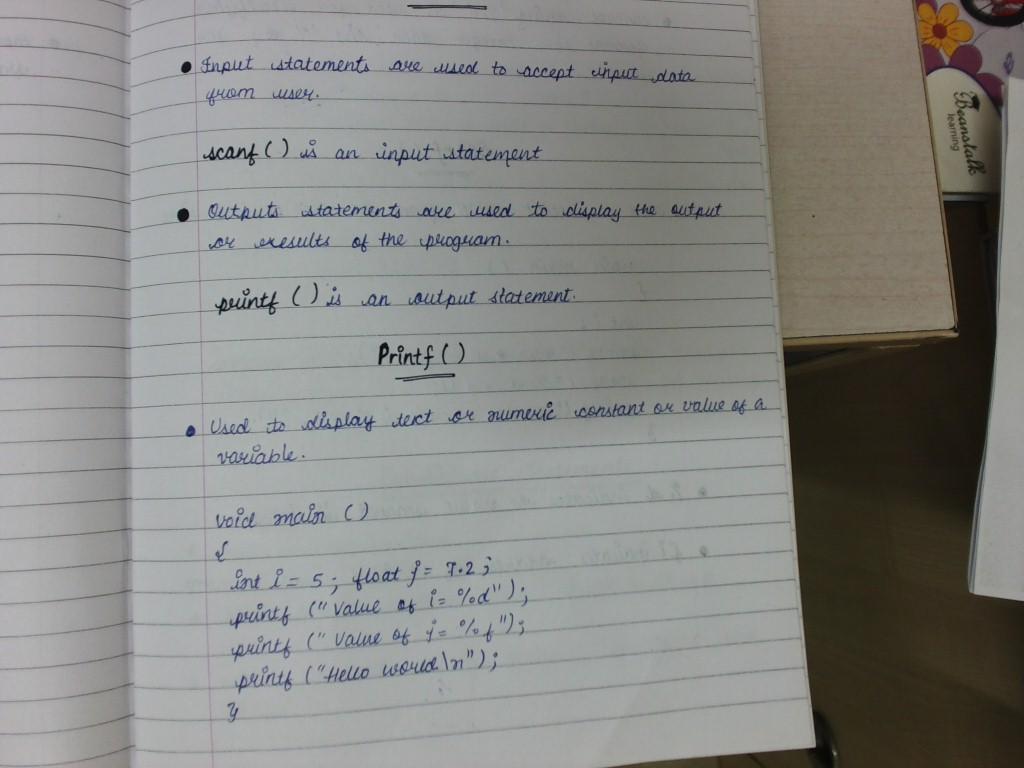 • Input statements are used to accept input data
from user.
scanf () is an input statement
• Outputs statements are used to display the output
or results of the program.
printf () is an output statement.
Printf ()
• Used to display text or numeric constant or value of a
variable.
void main ()
{
int i = 5; float j = 7.2;
printf ("Value of i= %d");
printf ("Value of j= %f");
printf ("Hello world\n");
}
Beanstalk
learning